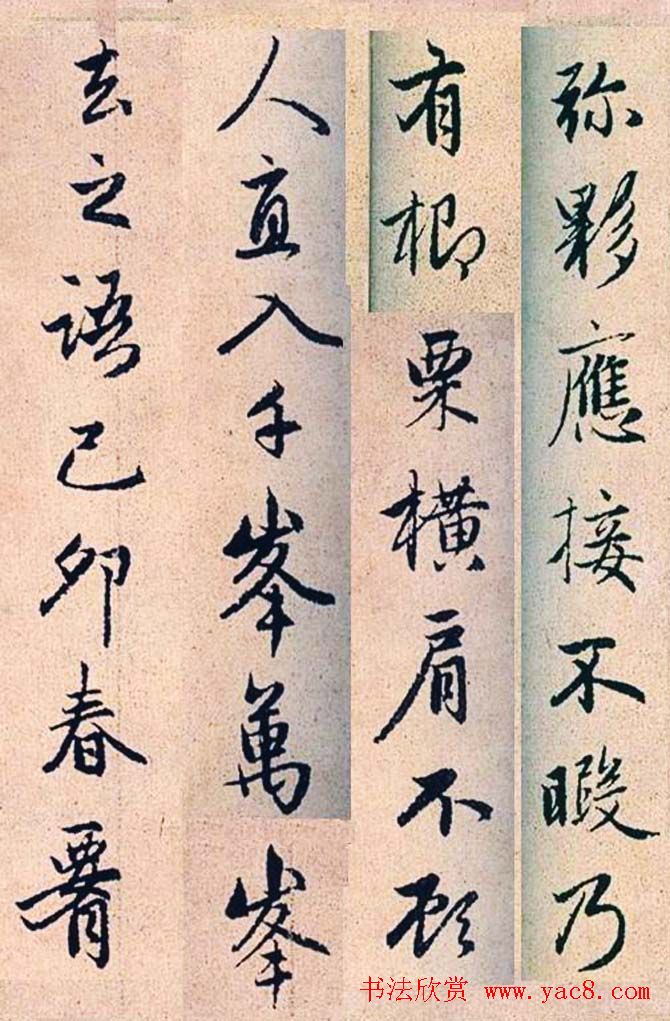 弥夥應接不暇乃
有楖栗橫肩不顧
人直入千峯萬峯
去之語己卯春
书法欣赏 www.yac8.com